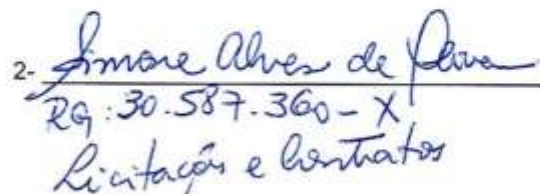 2- Simone Alves de Paiva
RG: 30.587.360-X
Licitações e Contratos